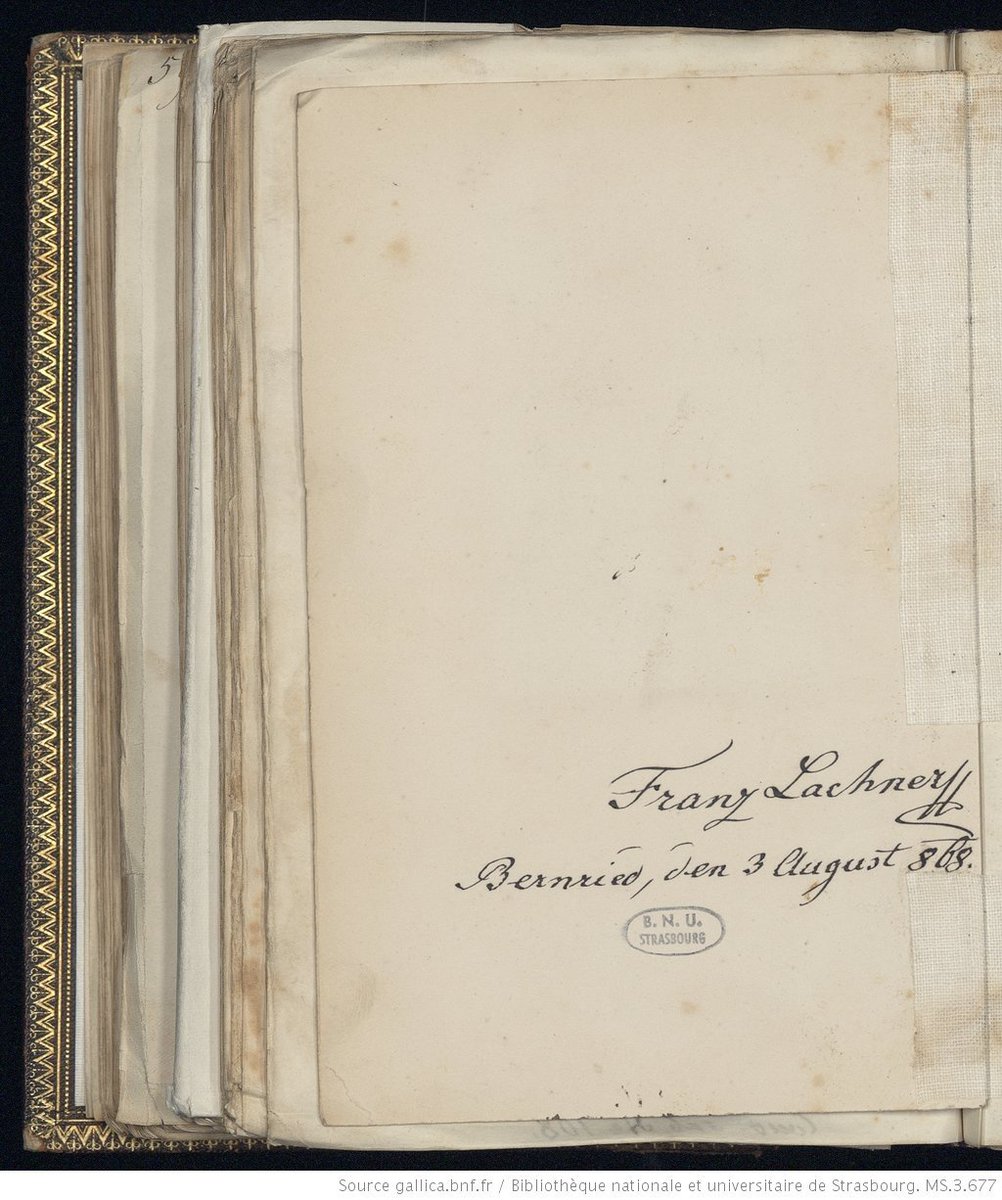 5
Franz Lachner
Bernried, den 3 August 868.
B. N. U.
STRASBOURG
Source gallica.bnf.fr / Bibliothèque nationale et universitaire de Strasbourg. MS.3.677